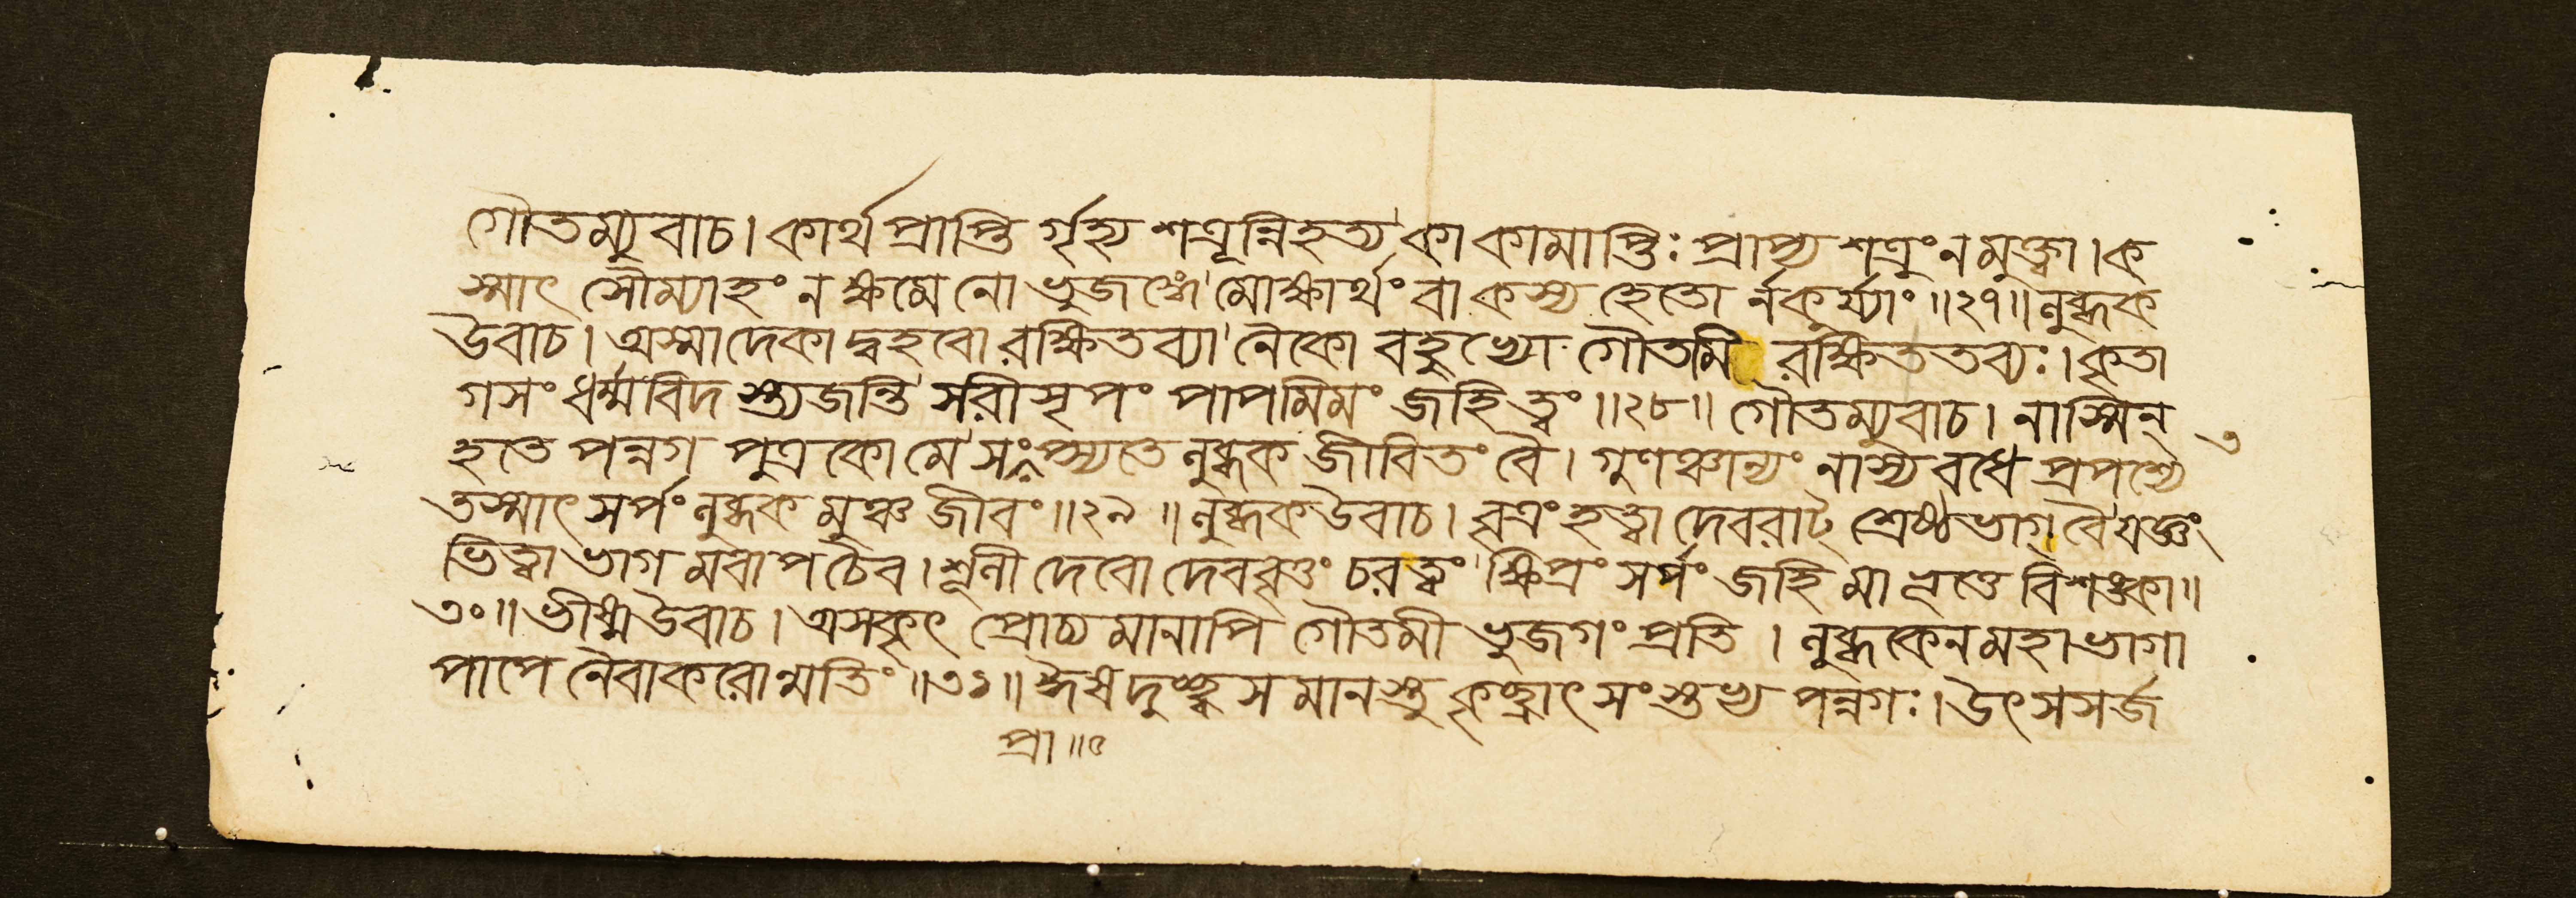 গৌতম্যুবাচ। কার্থপ্রাপ্তি র্গৃহ্য শত্রূন্নিহত্য কা কামাপ্তিঃ প্রাপ্য শত্রুং ন মুক্ত্বা। ক
স্মাৎ সৌম্যাহং ন ক্ষমে নো ভুজঙ্গে মোক্ষার্থং বা কস্য হেতো র্নকুর্য্যাং ॥২৭॥ লুব্ধক
উবাচ। অস্মাদেকাদ্বহবো রক্ষিতব্যা নৈকো বহুভ্যো গৌতমি রক্ষিততব্যঃ। কৃতা
গসং ধর্ম্মবিদ স্ত্যজন্তি সরীসৃপং পাপমিমং জহি ত্বং ॥২৮॥ গৌতম্যুবাচ। নাস্মিন্
হতে পন্নগ পুত্রকো মে সংপ্স্যতে লুব্ধক জীবিতং বৈ। গুণঞ্চান্যং নাস্য বধে প্রপশ্যে
তস্মাৎ সর্পং লুব্ধক মুঞ্চ জীবং ॥২৯॥ লুব্ধক উবাচ। বৃত্রং হত্বা দেবরাট্ শ্রেষ্ঠভাগ্ বৈ যজ্ঞং
ভিত্বা ভাগ মবাপ চৈব। শূলী দেবো দেববৃত্তং চর ত্বং ক্ষিপ্রং সর্পং জহি মা ভূত্তে বিশঙ্কা॥
৩০॥ ভীষ্ম উবাচ। অসকৃৎ প্রোচ্য মানাপি গৌতমী ভুজগং প্রতি। লুব্ধকেন মহাভাগা
পাপে নৈবাকরোন্মতিং ॥৩১॥ ঈষদুচ্ছ্বসমানস্তু কৃচ্ছ্রাৎ সংস্তভ্য পন্নগঃ। উৎসসর্জ
প্রা॥৫